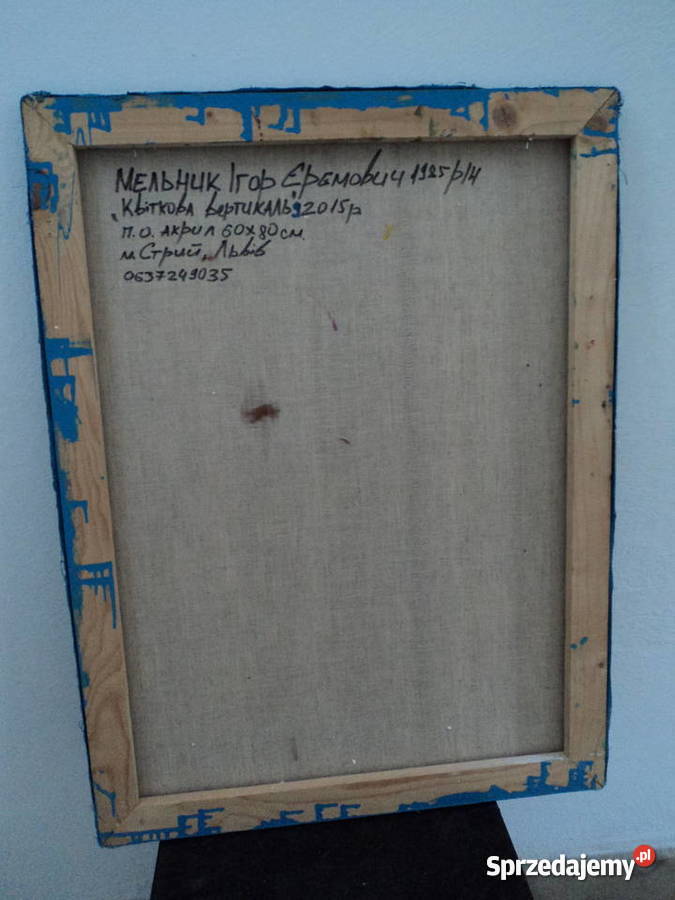 Мельник Ігор Єремович 1985 р/н
„Квіткова вертикаль" 2015р
п.о. акрил 60х80см.
м. Стрий, Львів
0637249035
Sprzedajemy.pl